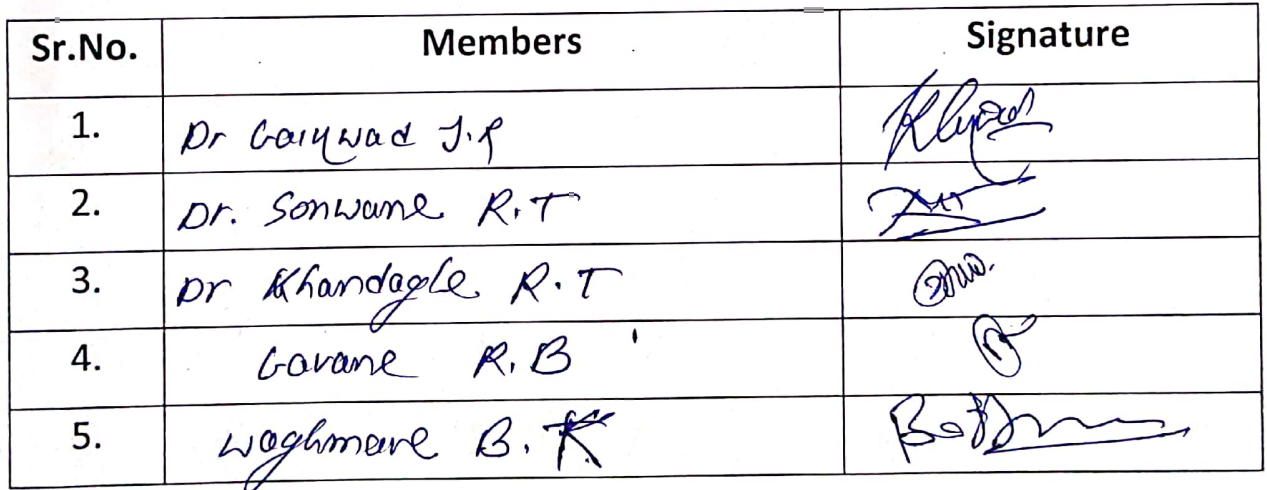 Sr.No. Members Signature
1. Dr Gaiywad J.R
2. Dr. Sonwane R.T
3. Dr Khandagle R.T
4. Gavane R.B
5. Waghmare B.K